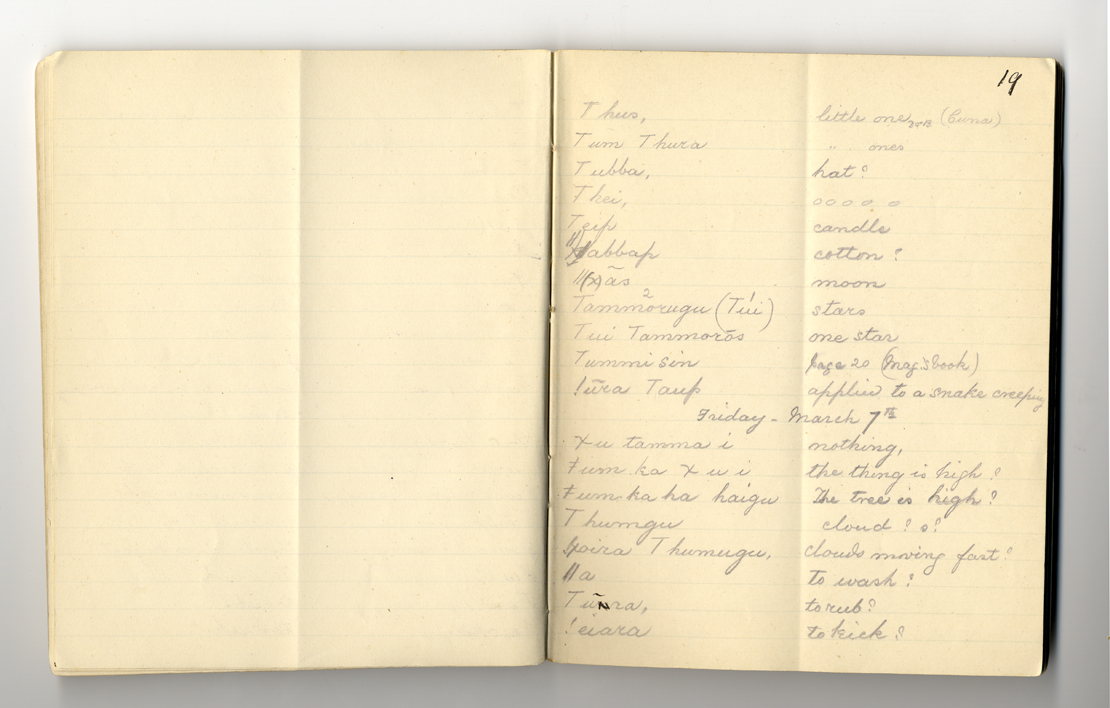 19
Thus, little one (Cuna)
Tum Thura " ones
Tubba, hat?
Thei, o o o o o
Teip candle
abbap cotton?
ǁ(x)ās moon
Tammorugu (Túi) stars
Tui Tammorōs one star
Tummi sin page 20 (Mag's book)
!ūra Taup applied to a snake creeping
Friday - March 7th
Xu tamma i nothing,
Ŧum ka X u i the thing is high?
Ŧum ka ha haigu The tree is high?
Thumgu cloud? s?
ǂoira Thumugu, clouds moving fast?
ǁa to wash?
to rub?
!eiara to kick?